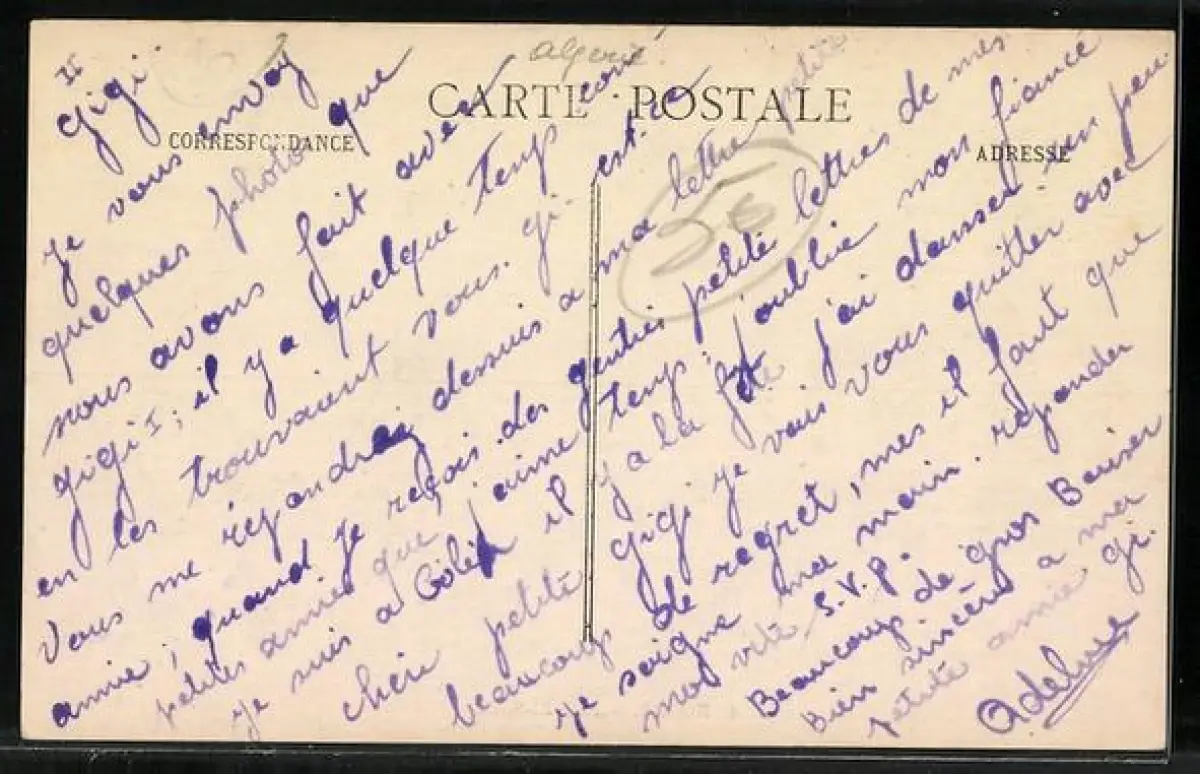 II
Gigi
Je vous envoy
quelques photo que
nous avons fait avec
gigi I; il y a quelque temp
en les trouvaient vous. gi. est ce
Vous me répondrai dessuis a ma lettre petite
amie, quand je reçois des genties petite lettres de mes
petites amies que j'aime temp, j'oublie mon fiancé
je suis a il y a la fête j'ai dansser un peu
chéri petite gigi je vais vous quitter avec
beaucoup de regret, mes il faut que
je soigne ma main. reponder
moi vite S.V.P.
Beaucoup de gros Baiser
Bien sincère a ma
petite amie gi.
algerie
CARTE POSTALE
CORRESPONDANCE
ADRESSE